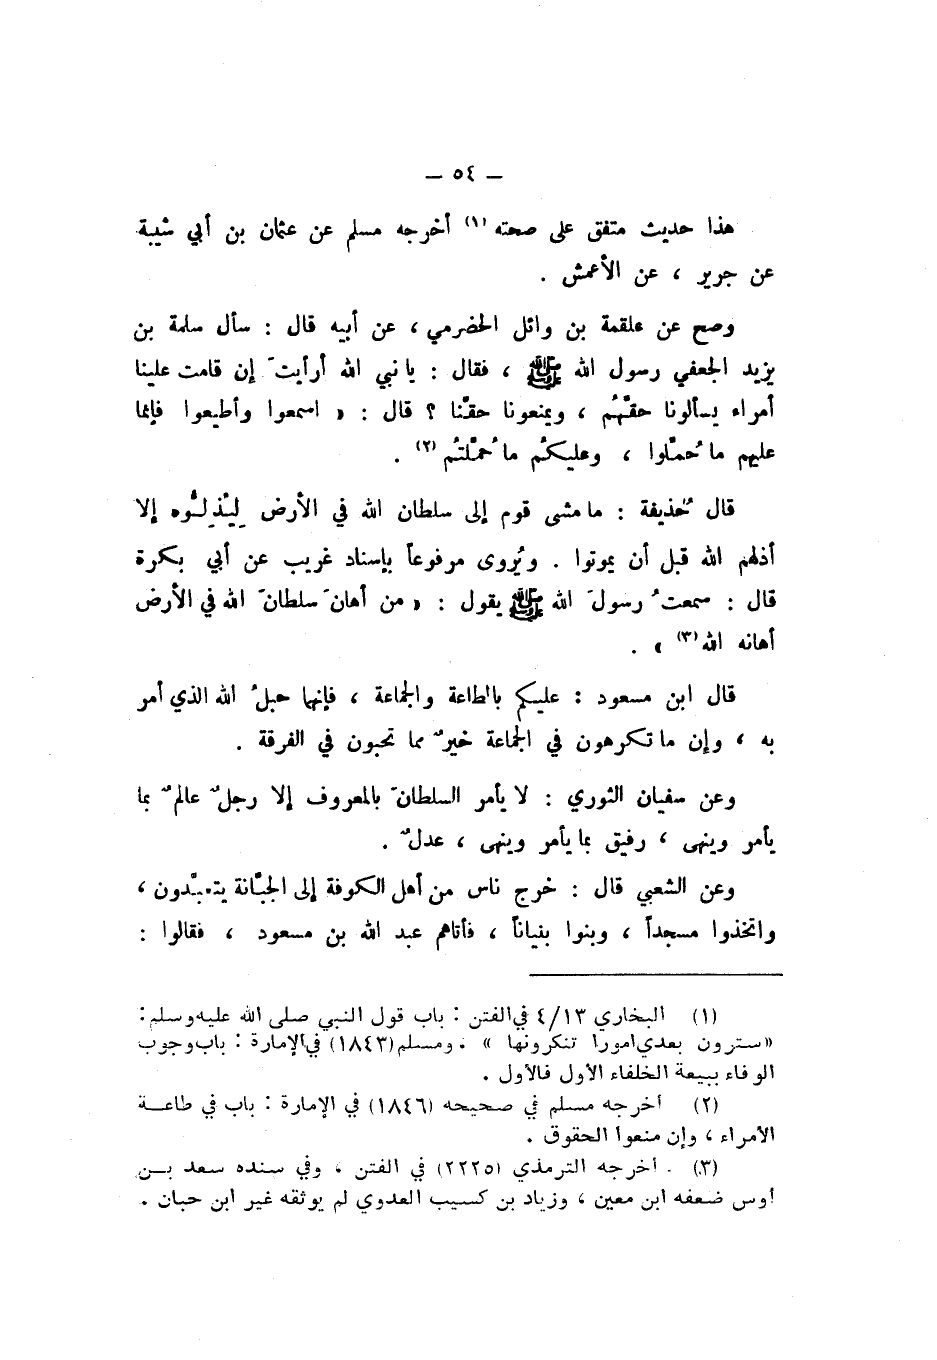 — ٥٤ —
هذا حديث متفق على صحته (١) أخرجه مسلم عن عثمان بن أبي شيبة
عن جرير ، عن الأعمش .
وصح عن علقمة بن وائل الحضرمي ، عن أبيه قال : سأل سلمة بن
يزيد الجعفي رسول الله ﷺ ، فقال : يا نبي الله أرأيتَ إن قامت علينا
أمراء يسألونا حقَّهُم ، ويمنعونا حقنَّا ؟ قال : « اسمعوا وأطيعوا فإنما
عليهم ما حُمِّلوا ، وعليكُم ما حُمِّلتُم (٢) .
قال حُذيفة : ما مشى قوم إلى سلطان الله في الأرض لِيُذِلُّوه إلا
أذلهم الله قبل أن يموتوا . ويُروى مرفوعاً بإسناد غريب عن أبي بكرة
قال : سمعتُ رسولَ الله ﷺ يقول : « من أهانَ سلطانَ الله في الأرض
أهانه الله (٣) » .
قال ابن مسعود : عليكم بالطاعة والجماعة ، فإنها حبلُ الله الذي أمر
به ، وإن ما تكرهون في الجماعة خيرٌ مما تحبون في الفرقة .
وعن سفيان الثوري : لا يأمر السلطانَ بالمعروف إلا رجلٌ عالمٌ بما
يأمر وينهى ، رفيق بما يأمر وينهى ، عدلٌ .
وعن الشعبي قال : خرج ناس من أهل الكوفة إلى الجبَّانة يتعبَّدون ،
واتخذوا مسجداً ، وبنوا بنياناً ، فأتاهم عبد الله بن مسعود ، فقالوا :
(١) البخاري ٤/١٣ في الفتن : باب قول النبي صلى الله عليه وسلم :
«سترون بعدي أمورا تنكرونها» . ومسلم (١٨٤٣) في الإمارة : باب وجوب
الوفاء ببيعة الخلفاء الأول فالأول .
(٢) أخرجه مسلم في صحيحه (١٨٤٦) في الإمارة : باب في طاعـة
الأمراء ، وإن منعوا الحقوق .
(٣) . أخرجه الترمذي (٢٢٢٥) في الفتن ، وفي سنده سعد بـن
أوس ضعفه ابن معين ، وزياد بن كسيب العدوي لم يوثقه غير ابن حبان .